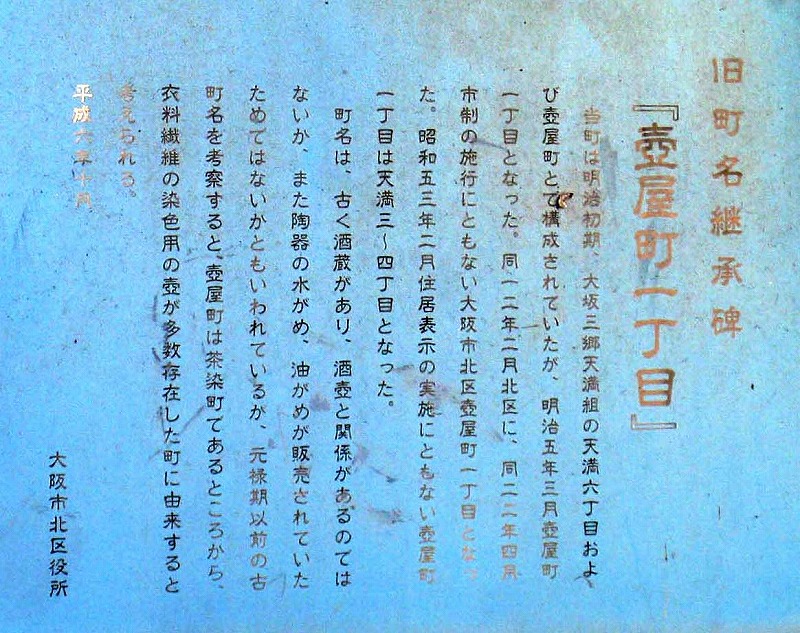 旧町名継承碑
『壺屋町一丁目』
当町は明治初期、大坂三郷天満組の天満六丁目およ
び壺屋町とで構成されていたが、明治五年三月壺屋町
一丁目となった。同一二年二月北区に、同二二年四月
市制の施行にともない大阪市北区壺屋町一丁目となっ
た。昭和五三年二月住居表示の実施にともない壺屋町
一丁目は天満三〜四丁目となった。
町名は、古く酒蔵があり、酒壺と関係があるのでは
ないか、また陶器の水がめ、油がめが販売されていた
ためではないかともいわれているが、元禄期以前の古
町名を考察すると、壺屋町は茶染町であるところから、
衣料繊維の染色用の壺が多数存在した町に由来すると
考えられる。
平成六年十月
大阪市北区役所